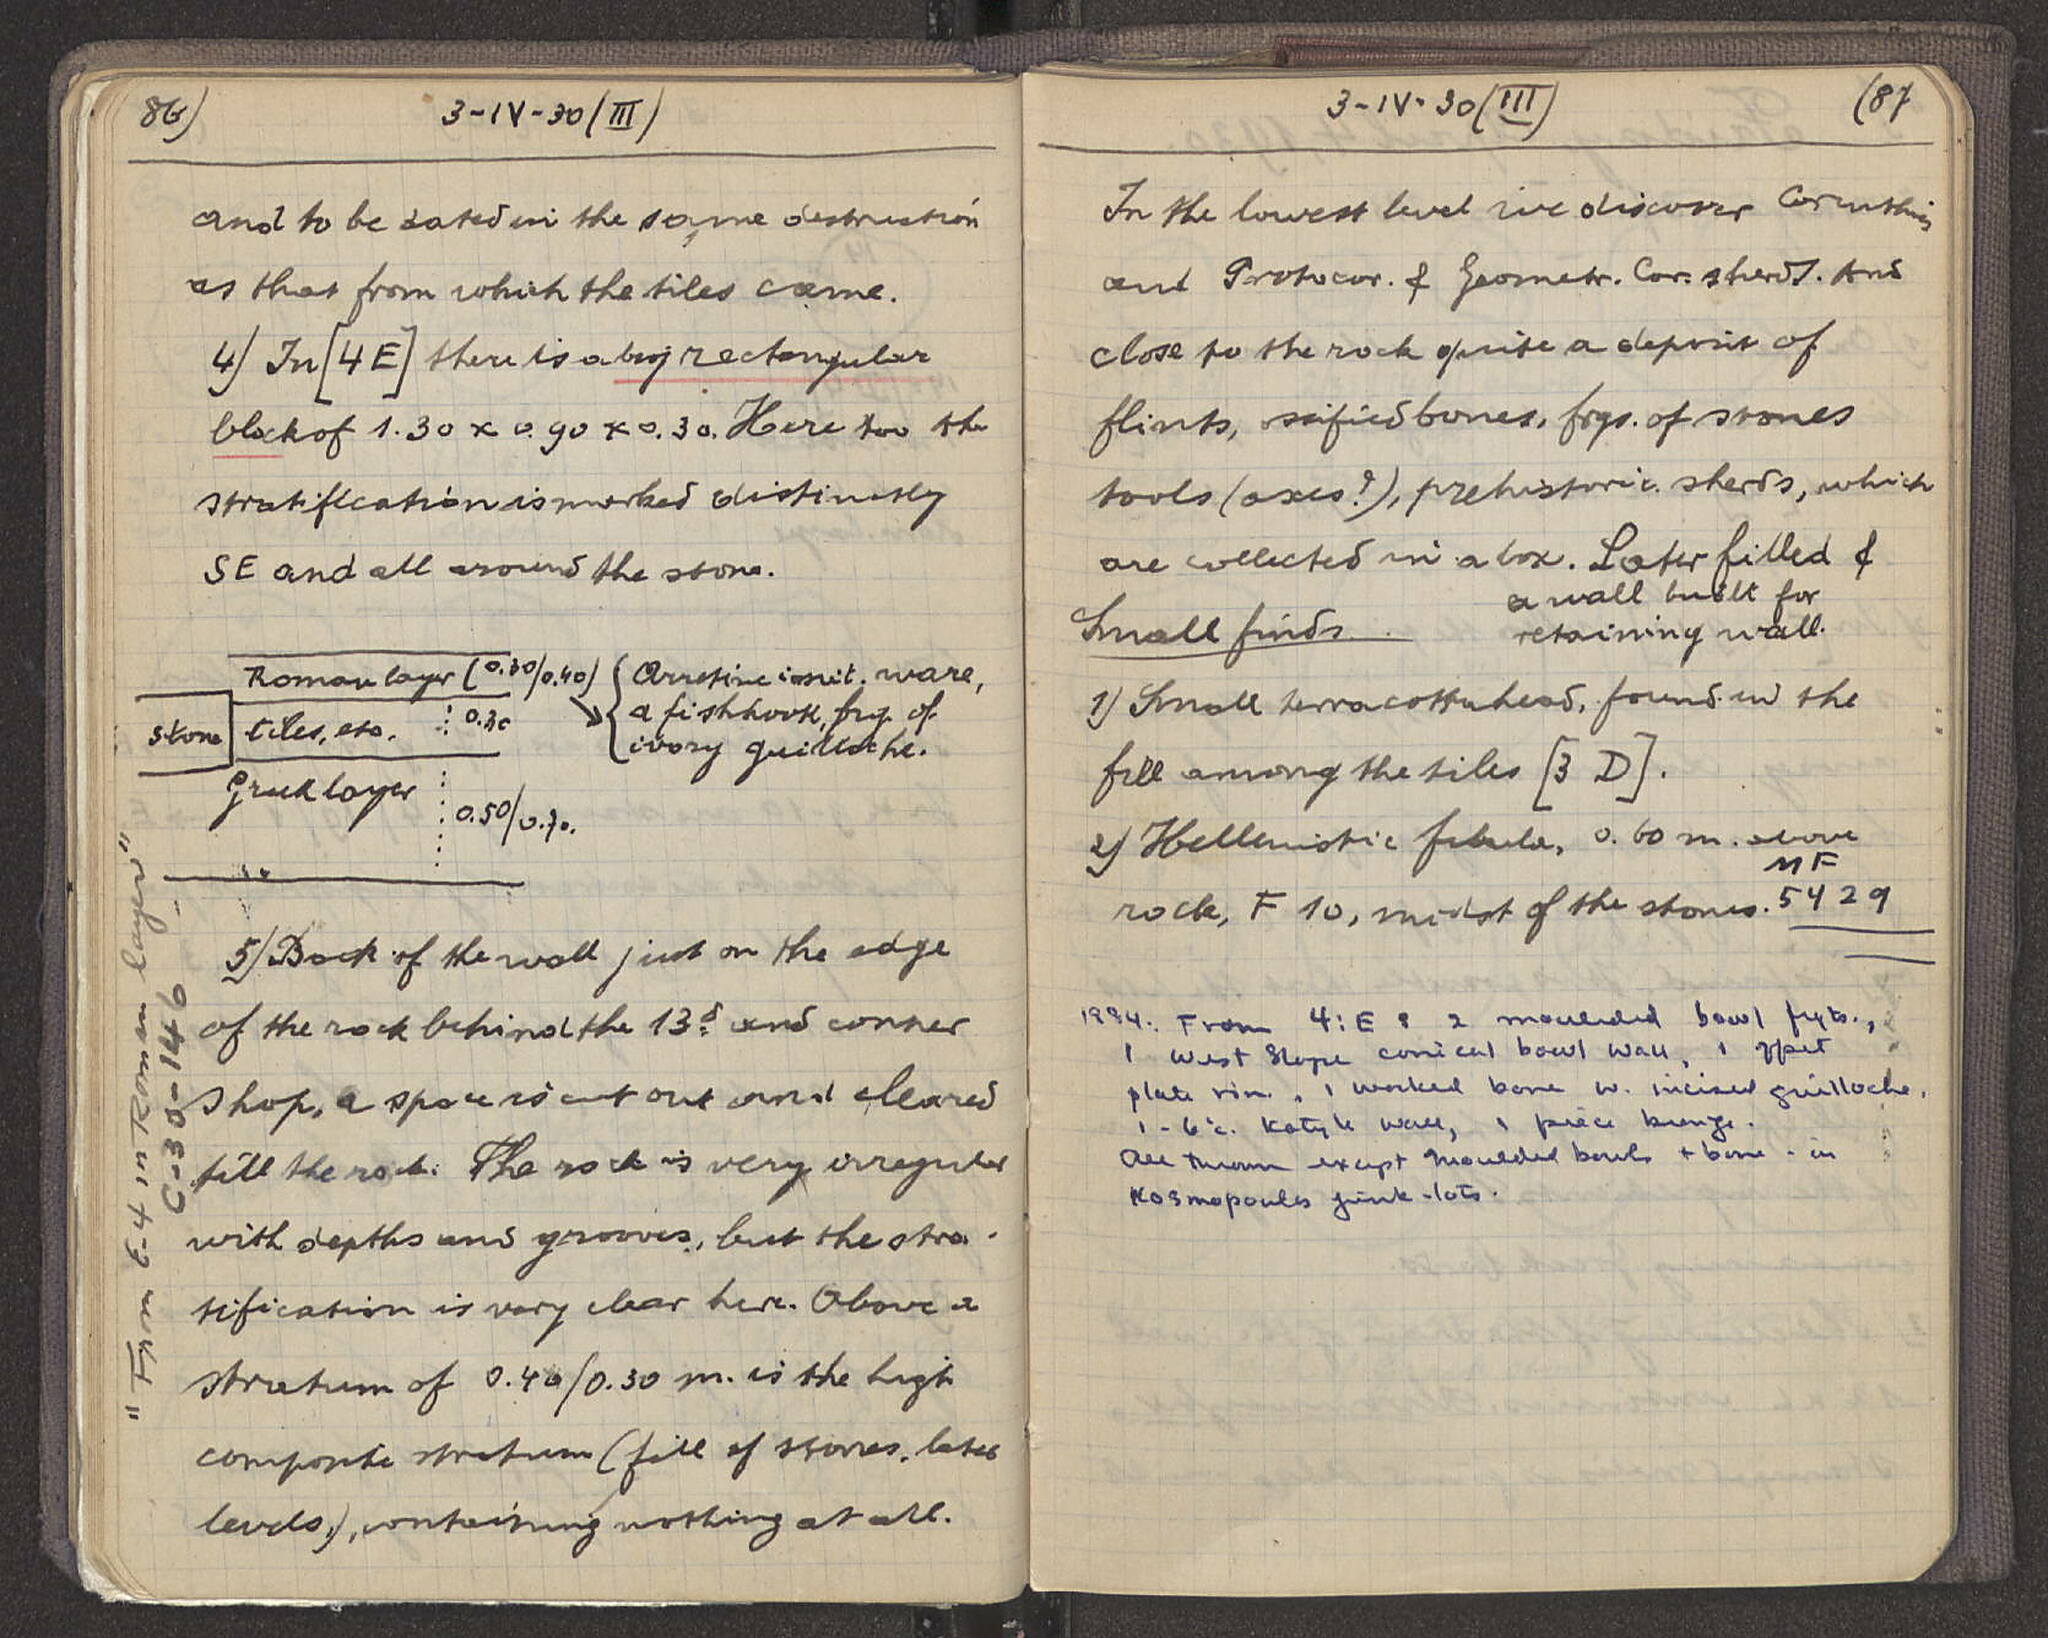 86)
3-IV-30 (III)
and to be dated in the same destruction
as that from which the tiles came.
4) In [4 E] there is a big rectangular
block of 1.30 x 0.90 x 0.30. Here too the
stratification is marked distinctly
SE and all around the stone.
Roman layer (0.30/0.40)
Arretine imit. ware,
a fishhook, frg. of
ivory guilloche.
stone
tiles, etc. 0.30
Greek layer
0.50/0.70.
"From E-4 in Roman layer"
C-30-146
5) Back of the wall just on the edge
of the rock behind the 13d. and corner
shop, a space is cut out and cleared
till the rock. The rock is very irregular
with depths and grooves, but the stra-
tification is very clear here. Above a
stratum of 0.40/0.30 m. is the high
composite stratum (fill of stones, later
levels), containing nothing at all.
3-IV-30 (III)
(87
In the lowest level we discover Corinthian
and Protocor. & Geometr. Cor. sherds. And
close to the rock quite a deposit of
flints, ossified bones, frgs. of stones
tools (axes?), prehistoric sherds, which
are collected in a box. Later filled &
a wall built for
retaining wall.
Small finds
1) Small terracotta head, found in the
fill among the tiles [3 D].
2) Hellenistic fibula, 0.60 m. above
rock, F 10, midst of the stones. MF
5429
1994: From 4:E : 2 moulded bowl frgts.,
1 West Slope conical bowl wall, 1
plate rim, 1 worked bone w. incised guilloche.
1 - 6 c. Kotyle wall, 1 piece bronze.
All thrown except moulded bowls + bone - in
Kosmopoulos junk-lots.